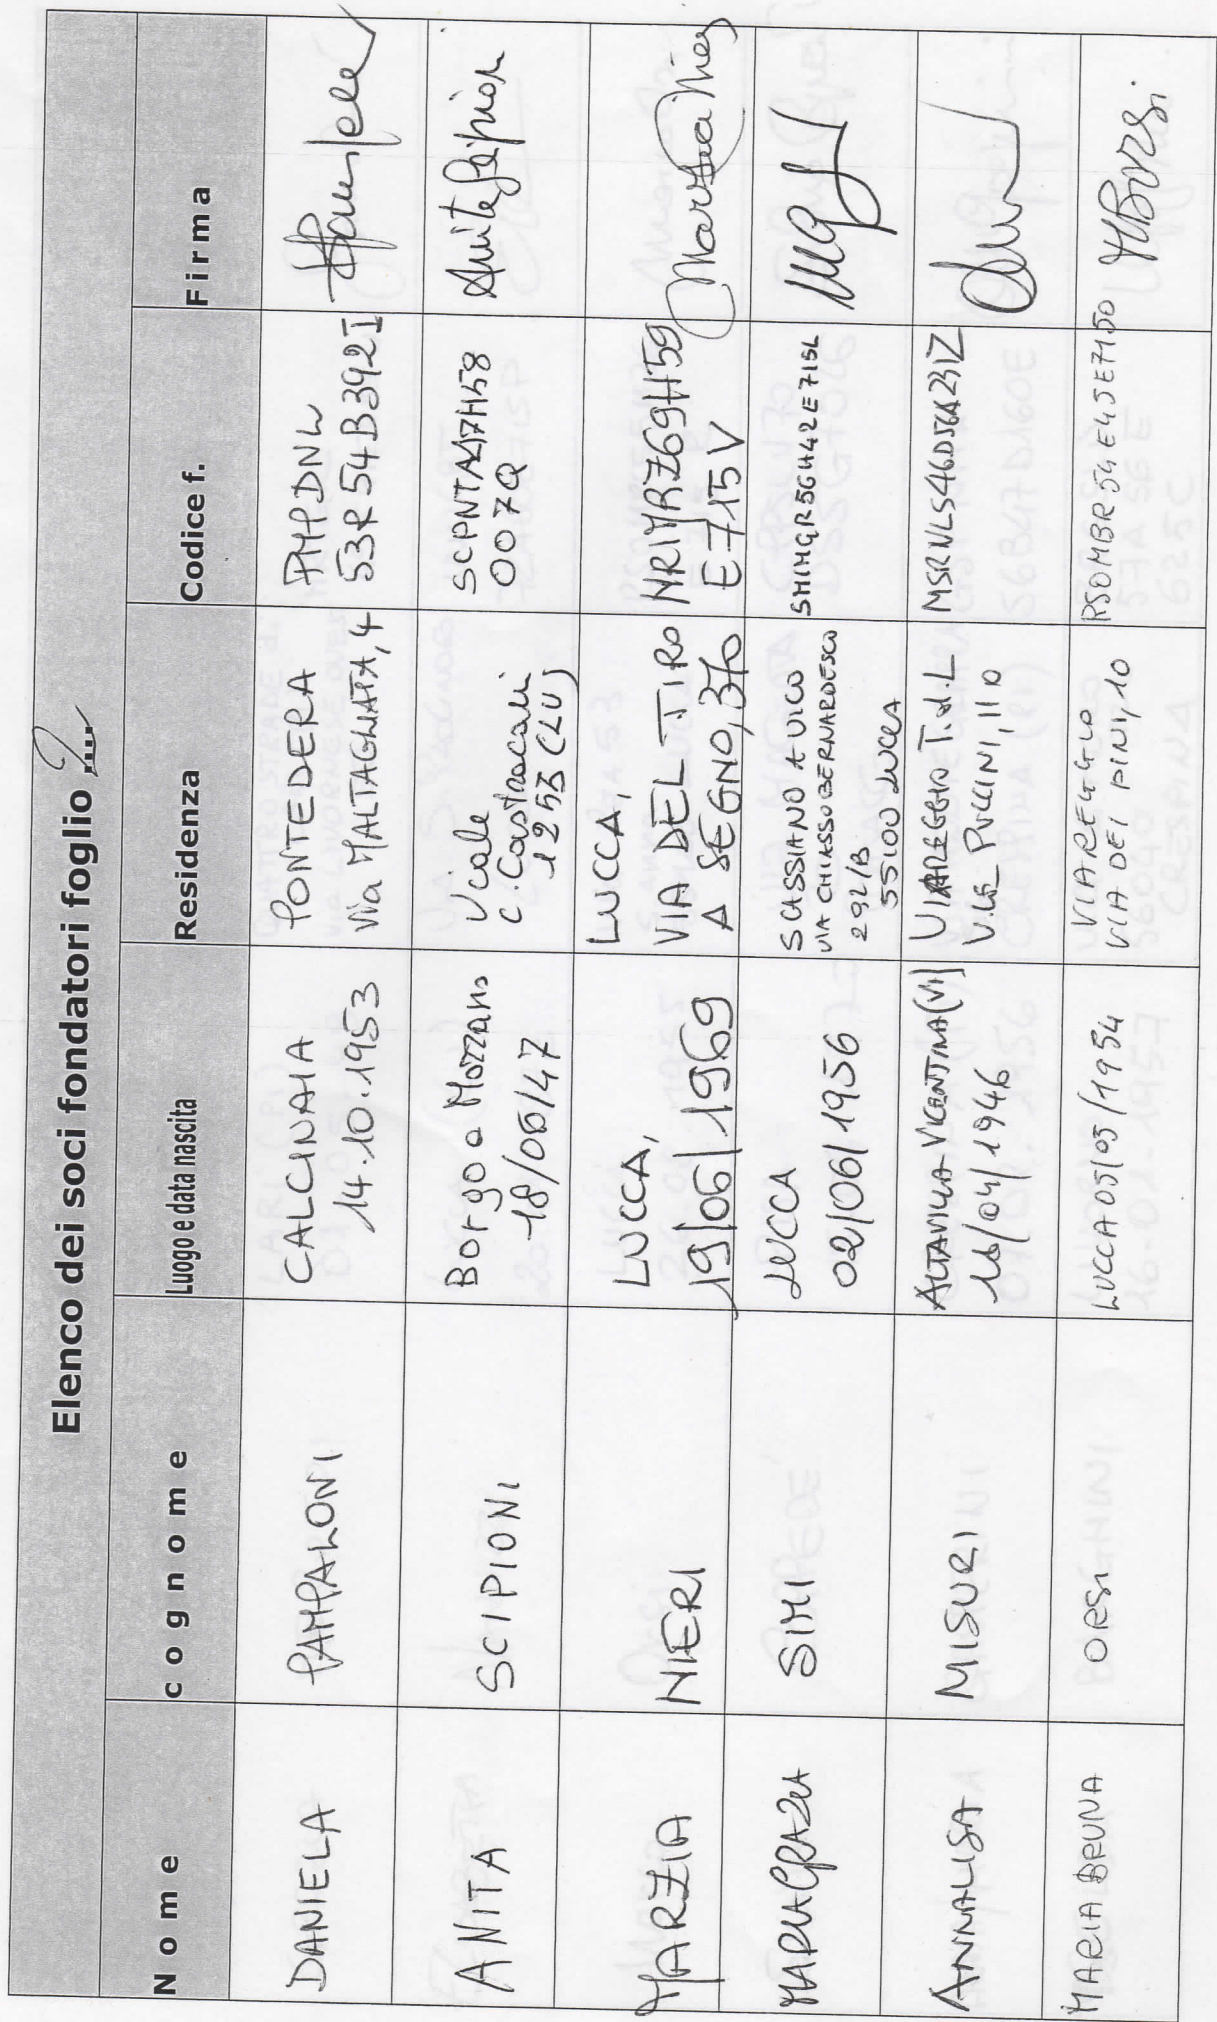 Elenco dei soci fondatori foglio 2
Nome cognome Luogo e data nascita Residenza Codice f. Firma
DANIELA PAMPALONI CALCINAIA
14.10.1953
PONTEDERA
Via MALTAGLIATA, 4
PMPDNL
53R54B392I
ANITA SCIPIONI Borgo a Mozzano
18/06/47
Viale
C. Castracani
1253 (LU)
SCPNTA47H58
007Q
Anita Scipioni
MARZIA NIERI LUCCA,
19/06/1969
LUCCA,
VIA DEL TIRO
A SEGNO, 370
NRIMRZ69H59
E715V
Marzia Nieri
MARIAGRAZIA SIMI LUCCA
02/06/1956
S CASSIANO A VICO
VIA CHIASSO BERNARDESCO
292/B
55100 LUCCA
SMIMGR56H42E715L
ANNALISA MISURI ALTAVILLA VICENTINA (VI)
16/04/1946
VIAREGGIO T.d.L
V.LE PUCCINI, 110
MSRNLS46D56A231Z
MARIA BRUNA BORSI LUCCA 05/05/1954
VIAREGGIO
VIA DEI PINI, 10
BRSMBR54E45E715O
MBorsi